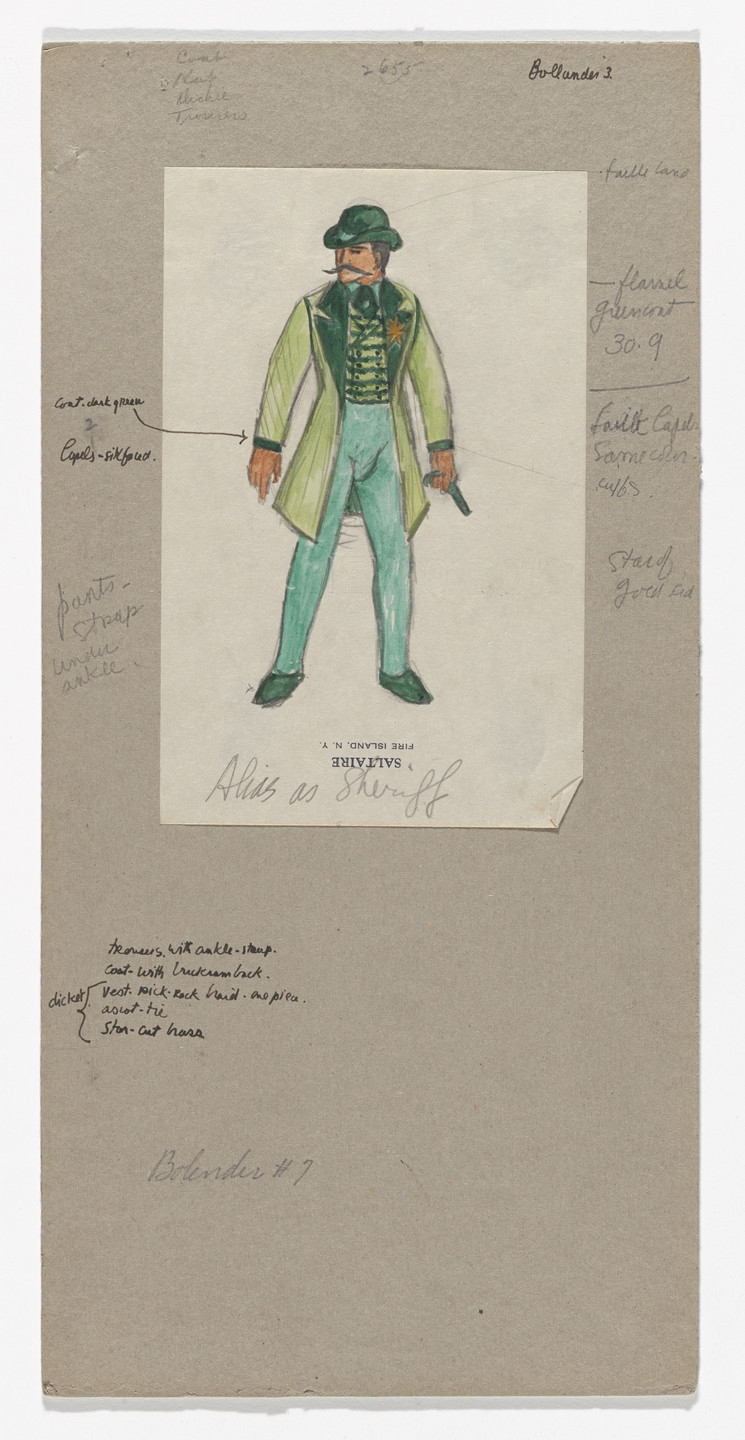 Coat
Hat
Dickie
Trousers
2655
Bollander 3.
faille band
— flannel
green coat
30.9
Coat. dark green
2
Lapels - silk faced.
Faille Lapel
Same color.
cuffs.
pants -
strap
under
ankle.
Star of
gold
SALTAIRE
FIRE ISLAND, N. Y.
Alias as Sheriff
trousers. with ankle-strap.
Coat - with buckram back.
dicket { Vest. Rick-Rack braid - one piece.
ascot-tie
Star-cut brass
Bolender # 7